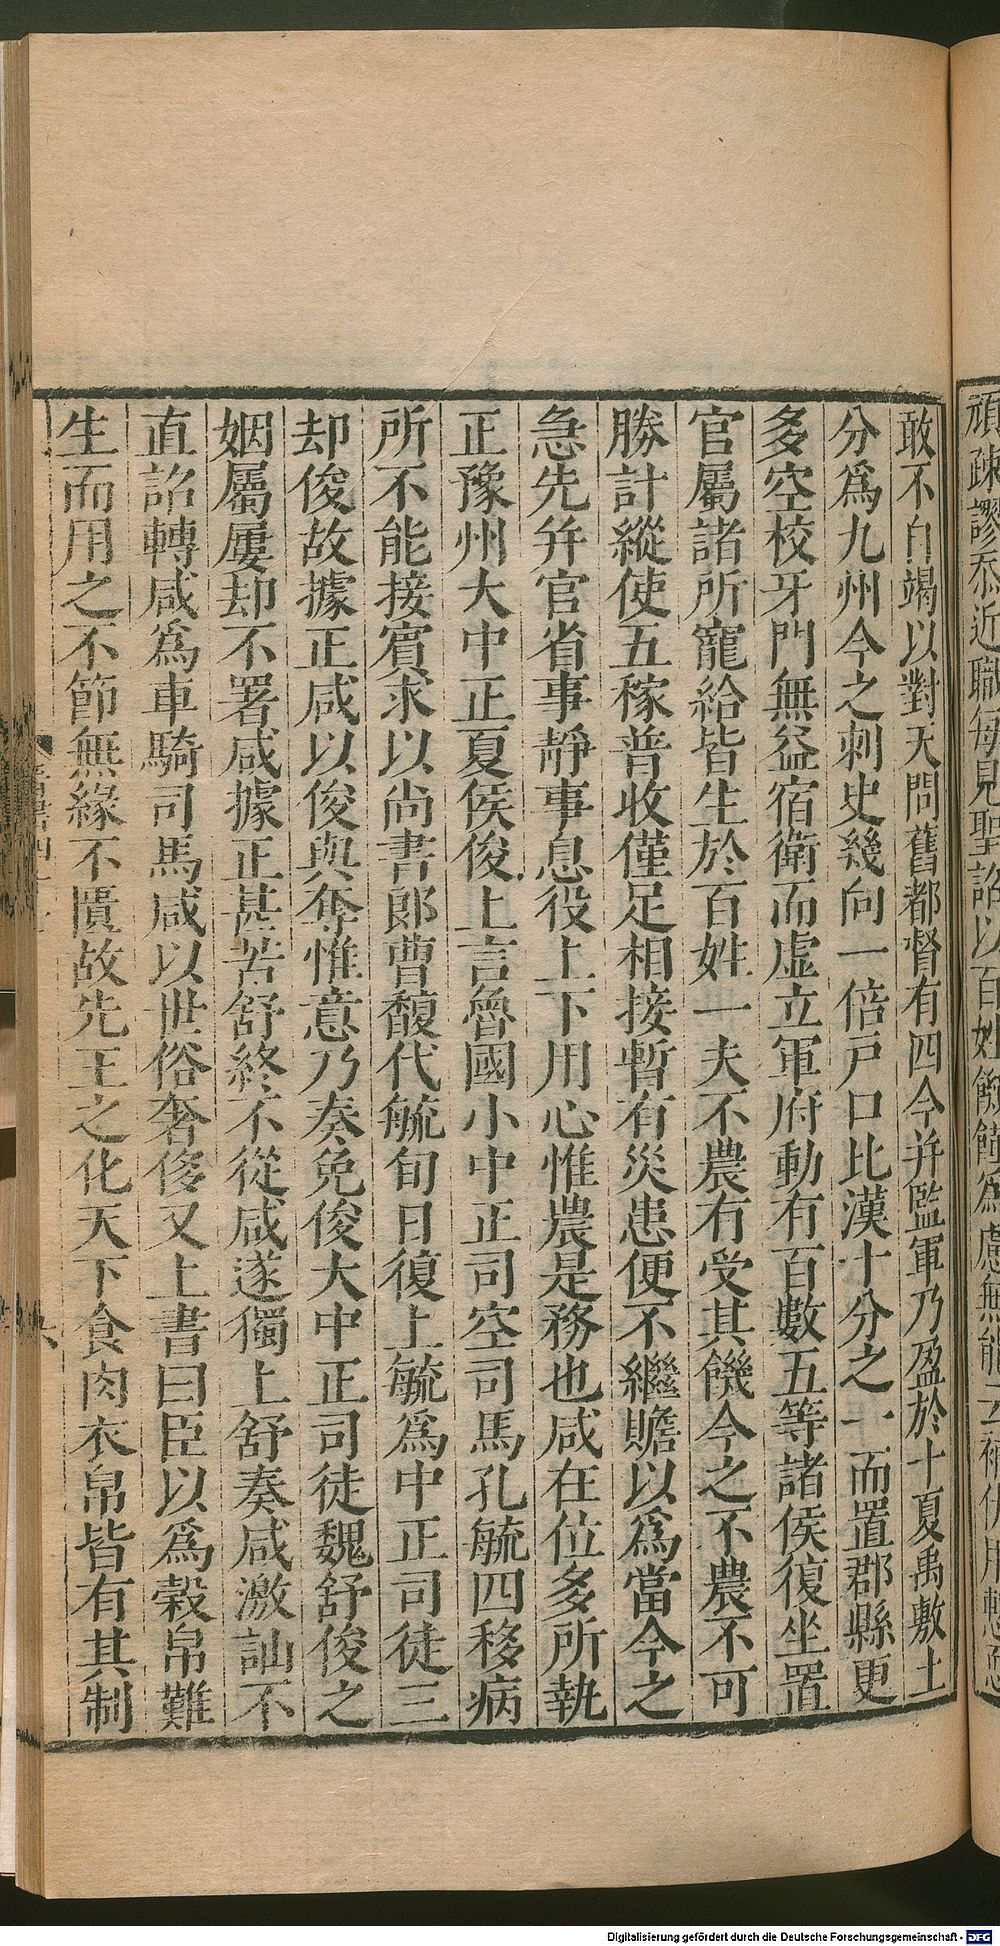 頑疎謬忝近職每見聖詔以百姓饑饉為慮無能云補伏用慙恧
敢不自竭以對天問舊都督有四今并監軍乃盈於十夏禹敷土
分爲九州今之刺史幾向一倍戸口比漢十分之一而置郡縣更
多空校牙門無益宿衛而虛立軍府動有百數五等諸侯復坐置
官屬諸所寵給皆生於百姓一夫不農有受其饑今之不農不可
勝計縱使五稼普收僅足相接暫有災患便不繼贍以爲當今之
急先并官省事靜事息役上下用心惟農是務也咸在位多所執
正豫州大中正夏侯俊上言魯國小中正司空司馬孔毓四移病
所不能接賓求以尚書郎曹馥代毓旬日復上毓爲中正司徒三
却俊故據正咸以俊與奪惟意乃奏免俊大中正司徒魏舒俊之
姻屬屢却不署咸據正甚苦舒終不從咸遂獨上舒奏咸激訕不
直詔轉咸爲車騎司馬咸以世俗奢侈又上書曰臣以爲穀帛難
生而用之不節無緣不匱故先王之化天下食肉衣帛皆有其制
Digitalisierung gefördert durch die Deutsche Forschungsgemeinschaft - DFG